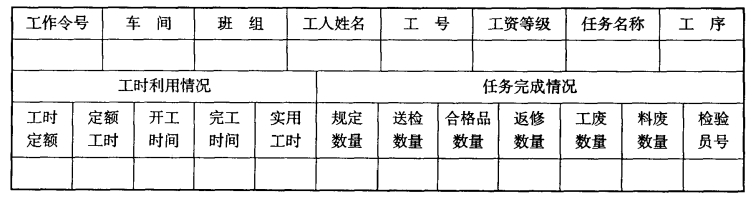 工作令号 车 间 班 组 工人姓名 工 号 工资等级 任务名称 工 序
工时利用情况 任务完成情况
工时 定额 开工 完工 实用 规定 送检 合格品 返修 工废 料废 检验
定额 工时 时间 时间 工时 数量 数量 数量 数量 数量 数量 员号